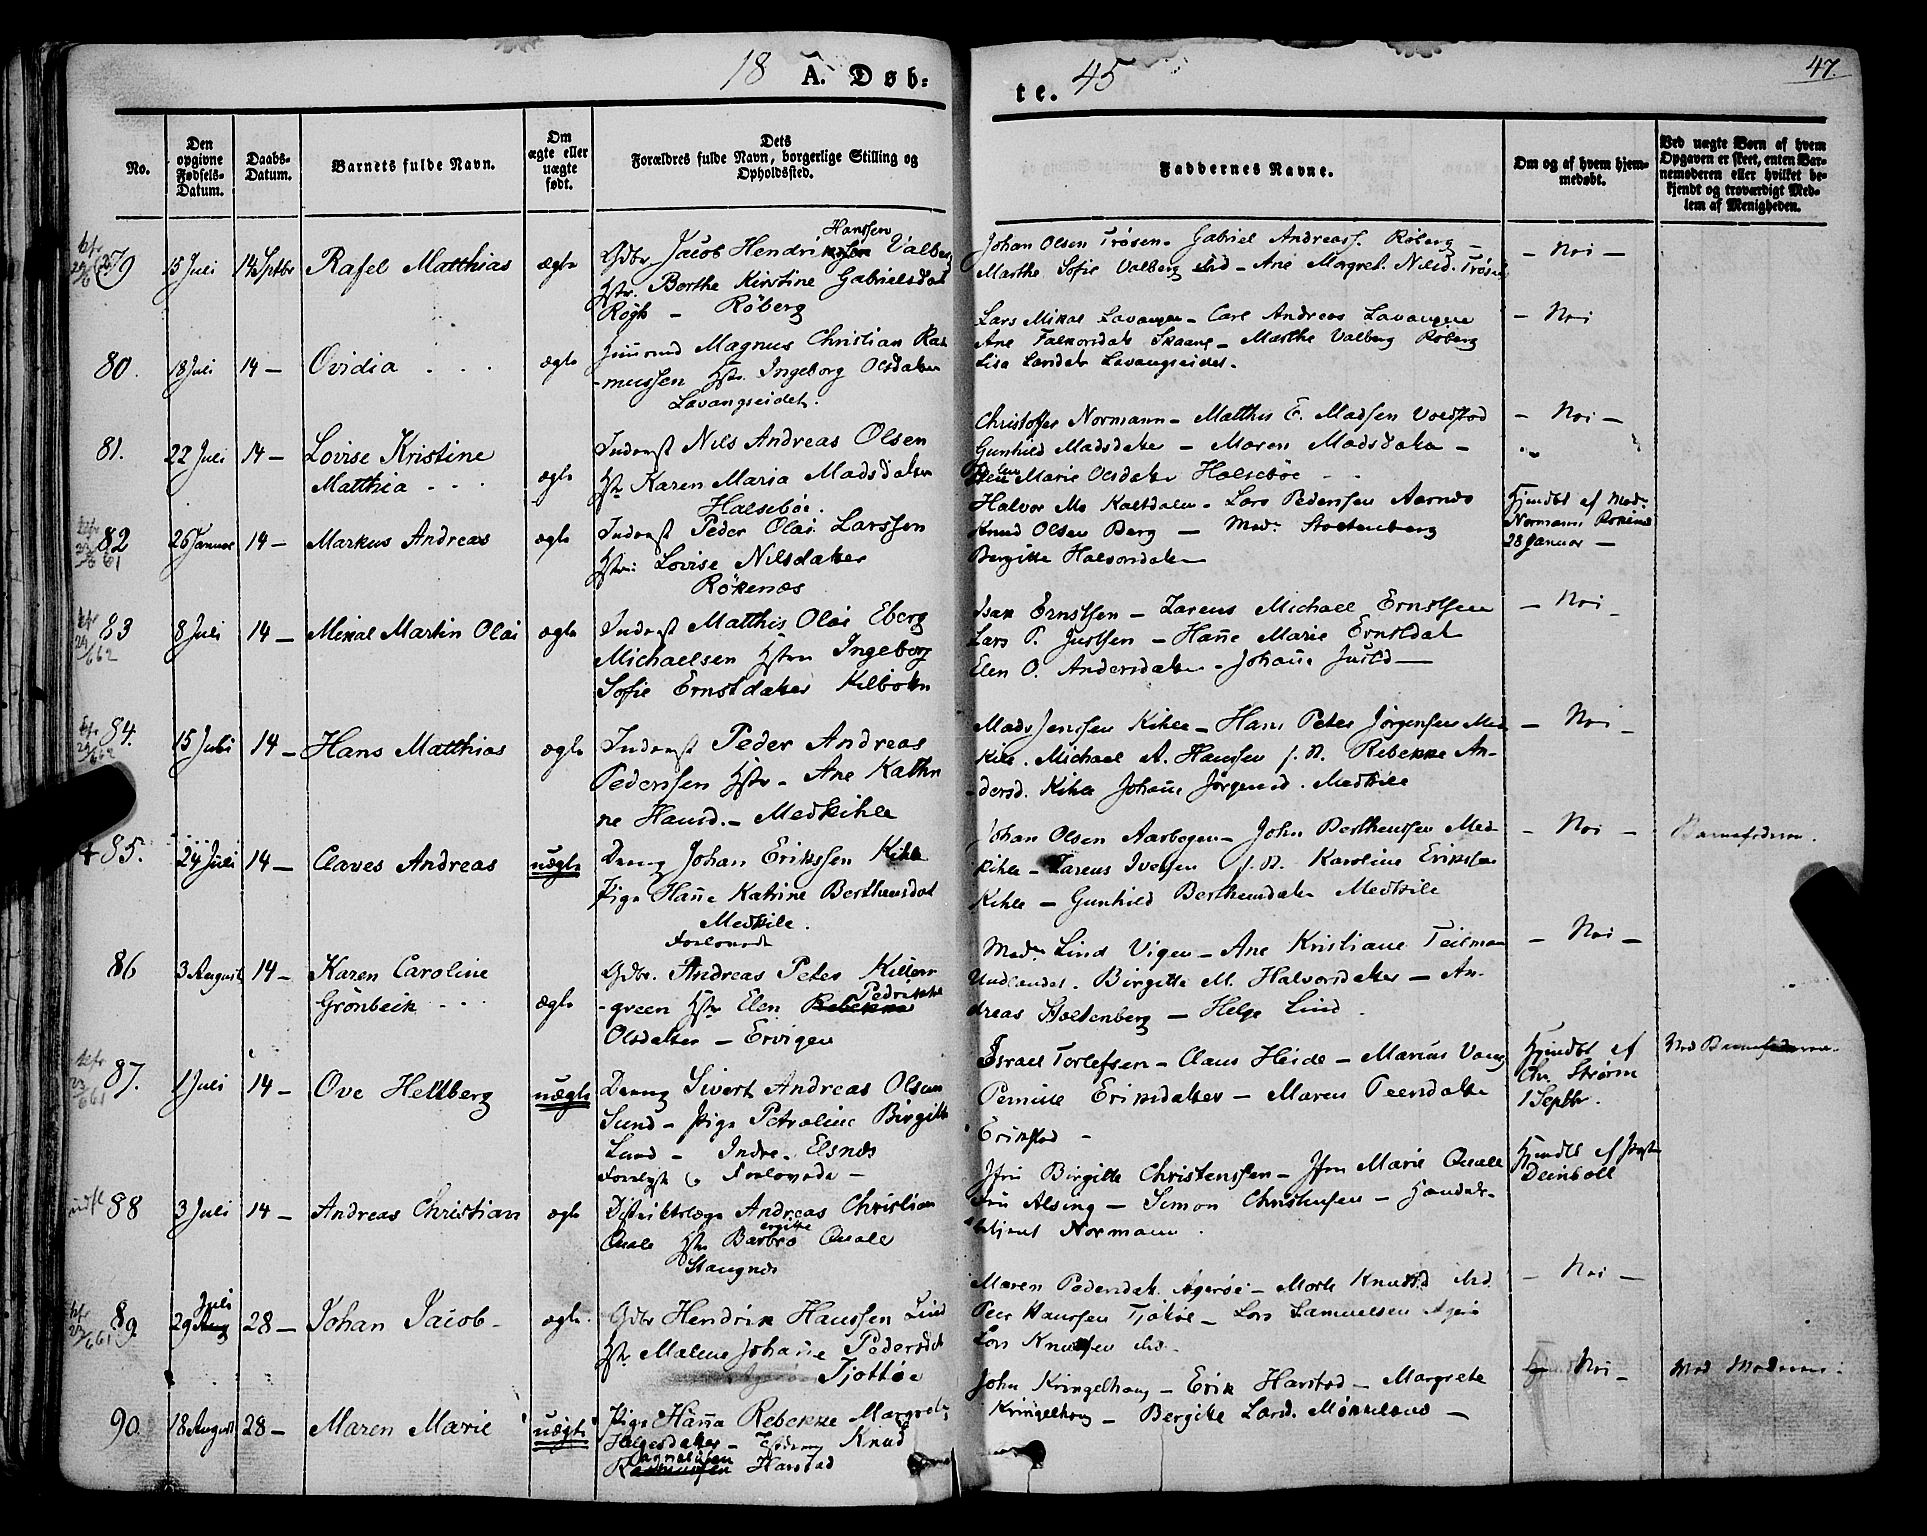 18 A. Døb-
te. 45
47.
No.
Den opgivne Fødsels-Datum.
Daabs-Datum.
Barnets fulde Navn.
Om ægte eller uægte født.
Dets Forældres fulde Navn, borgerlige Stilling og Opholdssted.
Faddernes Navne.
Om og af hvem hjem-
medøbt.
Ved uægte Børn af hvem
Opgaven er skeet, enten Bar-
nemoderen eller hvilket be-
kjendt og troværdigt Med-
lem af Menigheden.
79 15 Juli 14 Septbr Rafel Matthias ægte
Gdbr Jacob Hendrik Hanssen Valberg
Hstr. Berthe Kirstine Gabrielsdat
Røberg
Johan Olsen Trøsen - Gabriel Andreass. Røberg -
Marthe Sofie Valberg ibid - Ane Margret. Nilsd. Trøsen
- Nei -
80. 18 Juli 14 - Ovidia ægte
Magnus Christian Ras-
mussen Hstr. Ingeborg Olsdatter
Lavangseidet.
Lars Mikal Lavangen - Carl Andreas Lavangen
Ane Skaane - Marthe Valberg Røberg
Lisa Larsdat Lavangseidet.
- Nei
81. 22 Juli 14 - Lovise Kristine
Matthea ægte
Inderst Nils Andreas Olsen
Hstr Karen Maria Madsdatter
Halsebøe.
Christoffer Normann - Matthis E. Madsen
Gunhild Madsdatter - Maren Madsdatter -
Marie Olsdatter Halsebøe
- Nei -
82 26 Januar 14 - Markus Andreas ægte
Inderst Peder Olai Larssen
Hstr: Lovise Nilsdatter
Rökenæs
Halvor Mo Kaltdalen - Lars Pederssen Aarnes
Knud Olsen Berg - Mad. Stoltenberg
Bergitte Halvorsdatter
Hjemdbt af Mad.
Normann Rokenes
28 Januar -
83 8 Juli 14 - Mikal Martin Olai ægte
Inderst Matthis Olai Eberg
Michaelsen Hstru Ingeborg
Sofie Ernstdatter Kilbotn
Isak Ernstsen - Zareus Michael Ernstsen
Lars P. Justsen - Hanne Marie Ernstdat
Elen O. Andersdatter - Johanne Justd -
- Nei -
84. 15 Juli 14 - Hans Matthias ægte
Inderst Peder Andreas
Pederssen Hstr - Ane Kathri
ne Hansd. - Medkihle
Mads Jenssen Kihle - Hans Peter Jørgensen Med
kile. Michael A. Hanssen f. N. Rebekke An-
dersd. Kihle Johanne Jørgensd. Medkile
- Nei -
85. 24 Juli 14 - Claves Andreas uægte
Dreng Johan Erikssen Kihle
Pige Hanne Katrine Berthensdat
Medkile.
Forlovede
Johan Olsen Aarbogen - John Berthenssen Med-
kihle - Zareus Iversen f. N. Karoline Eriksdat
Kihle - Gunhild Berthensdatter Medkile
- Nei - Barnefaderen.
86 3 August 14 - Karen Caroline
Grønbeck ægte
Gdbr. Andreas Peter Killen-
green Hstr Elen Pedrikke
Olsdatter - Ervigen
Mad. Lind Vigen - Ane Kristiane Teilman
Undlandet. Birgitte M. Halvorsdatter - An-
dreas Stoltenberg - Helge Lind.
- Nei -
87. 1 Juli 14 - Ove Hellberg uægte
Dreng Sivert Andreas Olsen
Sund - Pige Petroline Birgitte
Lund - Indre - Elsnes
Forlovede -
Israel Torlefsen - Claus Heide - Marius Vang
Pernille Eriksdatter - Maren Peersdatter
Erikstad -
Hjemdbt af
Chr. Strøm
1 Septbr.
88 3 Juli 14 - Andreas Christian ægte
Distriktslæge Andreas Christian
Quale Hstr Barbro ergitte Quale
Stangnes
Jfru Birgitte Christenssen - Jfru Marie Quale
Fru Alsing - Simon Christensen - Handels-
betjent Normann.
Hjemdbt af Præst
Deinboll
89 29 Juli 28 - Johan Jacob - ægte.
Gdbr Hendrik Hanssen Lind
Hstr Malene Johanne Pedersdat
Tjottøe
Maren Pedersdat. Agerøe - Knudsd ibid.
Peer Hanssen Tjotøe - Lars Samuelsen Agerø
Lars Knudsen ibid. -
- Nei -
90. 18 August 28 - Maren Marie uægte
Pige Hanna Rebekke Margrete
Helgesdatter - Knud
Harstad
John Kringelhoug - Erik Harstad - Margrete
Kringelhoug - Bergitte Larsd. Møkkeland -
Nei - Ved Moderen.